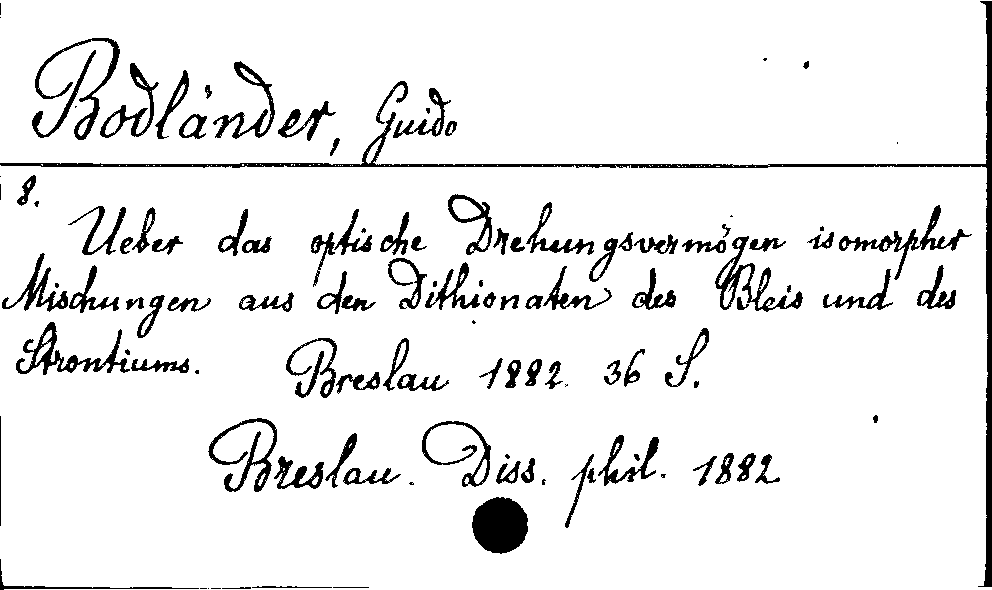 Bodländer, Guido
8.
Ueber das optische Drehungsvermögen isomorpher
Mischungen aus den Dithionaten des Bleis und des
Strontiums. Breslau 1882. 36 S.
Breslau. Diss. phil. 1882